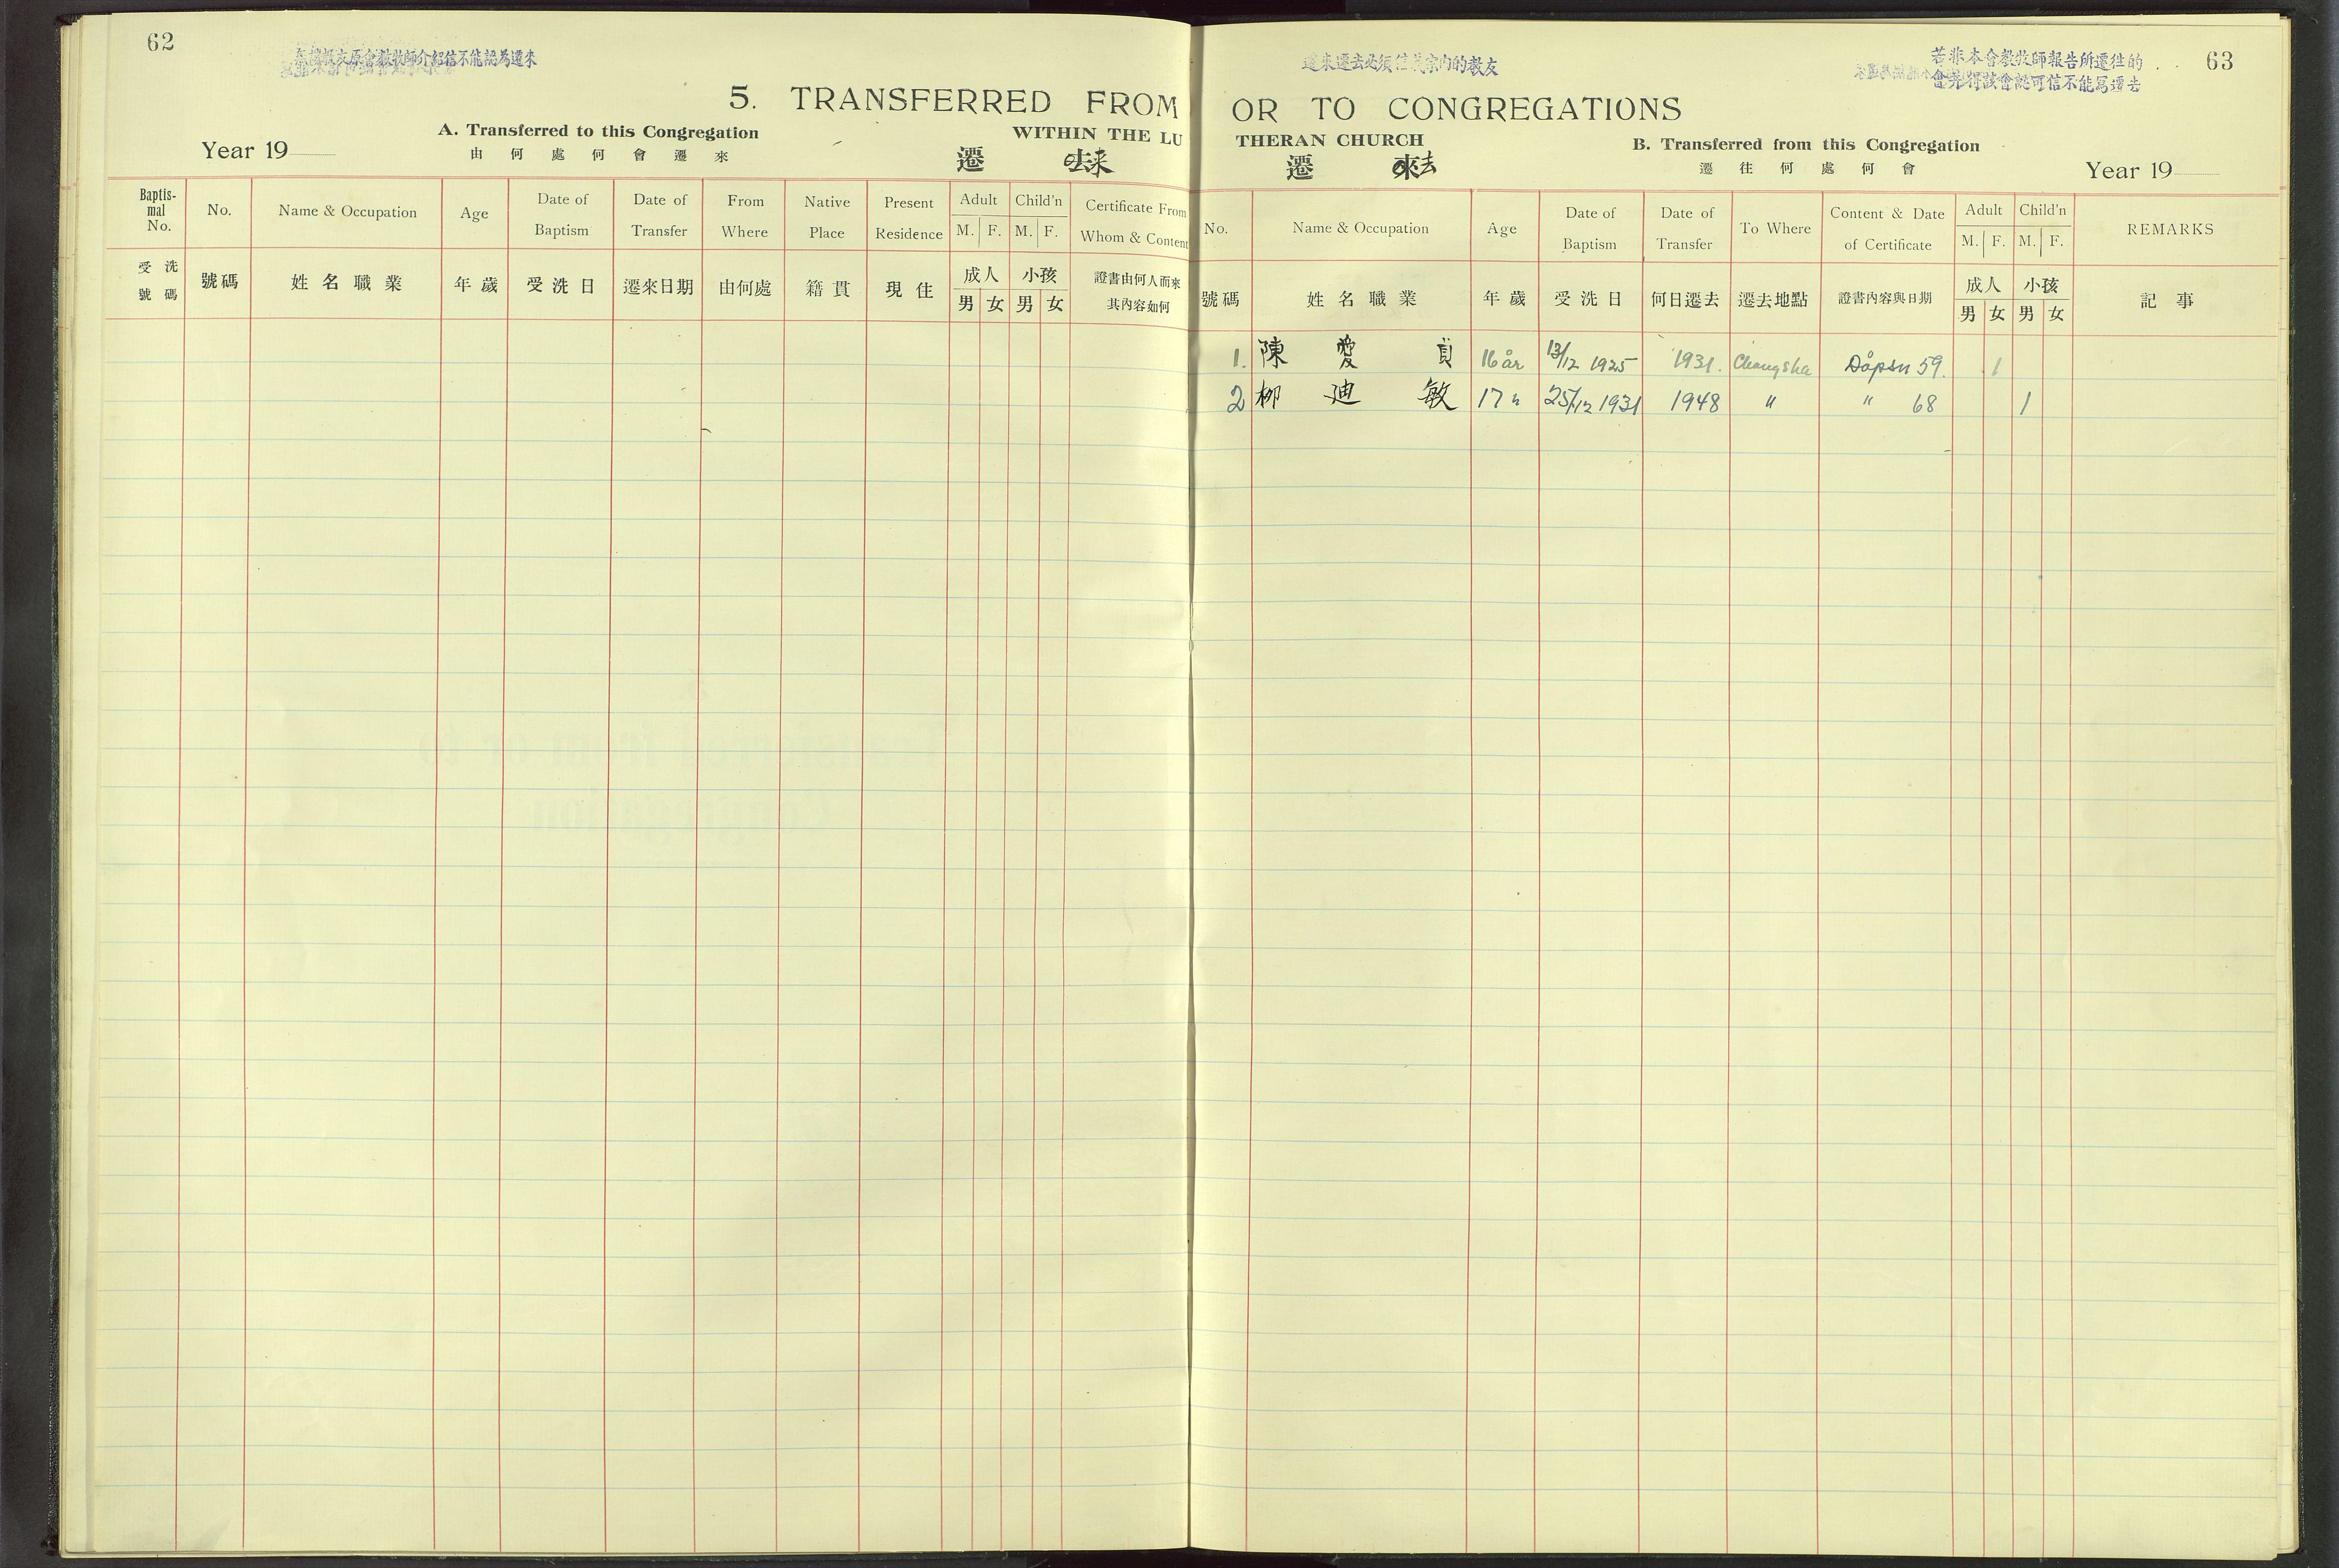 62
5. TRANSFERRED FROM
A. Transferred to this Congregation
WITHIN THE LU
Year 19
由何處何會遷來
遷 来
Baptis-mal No.
No.
Name & Occupation
Age
Date of Baptism
Date of Transfer
From Where
Native Place
Present Residence
Adult
M. F.
Child'n
M. F.
Certificate From Whom & Content
受洗號碼
號碼
姓名職業
年歲
受洗日
遷來日期
由何處
籍貫
現住
成人
男 女
小孩
男 女
證書由何人而來
其內容如何
若非本會教牧師報告所遷往的
63
OR TO CONGREGATIONS
THERAN CHURCH
B. Transferred from this Congregation
遷 去
遷往何處何會
Year 19
No.
Name & Occupation
Age
Date of Baptism
Date of Transfer
To Where
Content & Date of Certificate
Adult
M. F.
Child'n
M. F.
REMARKS
號碼
姓名職業
年歲
受洗日
何日遷去
遷去地點
證書內容與日期
成人
男 女
小孩
男 女
記事
1. 陳愛貞 16 år 13/12 1925 1931. Changsha Dåpsn 59. 1
2 柳迪敏 17 " 25/12 1931 1948 " " 68 1